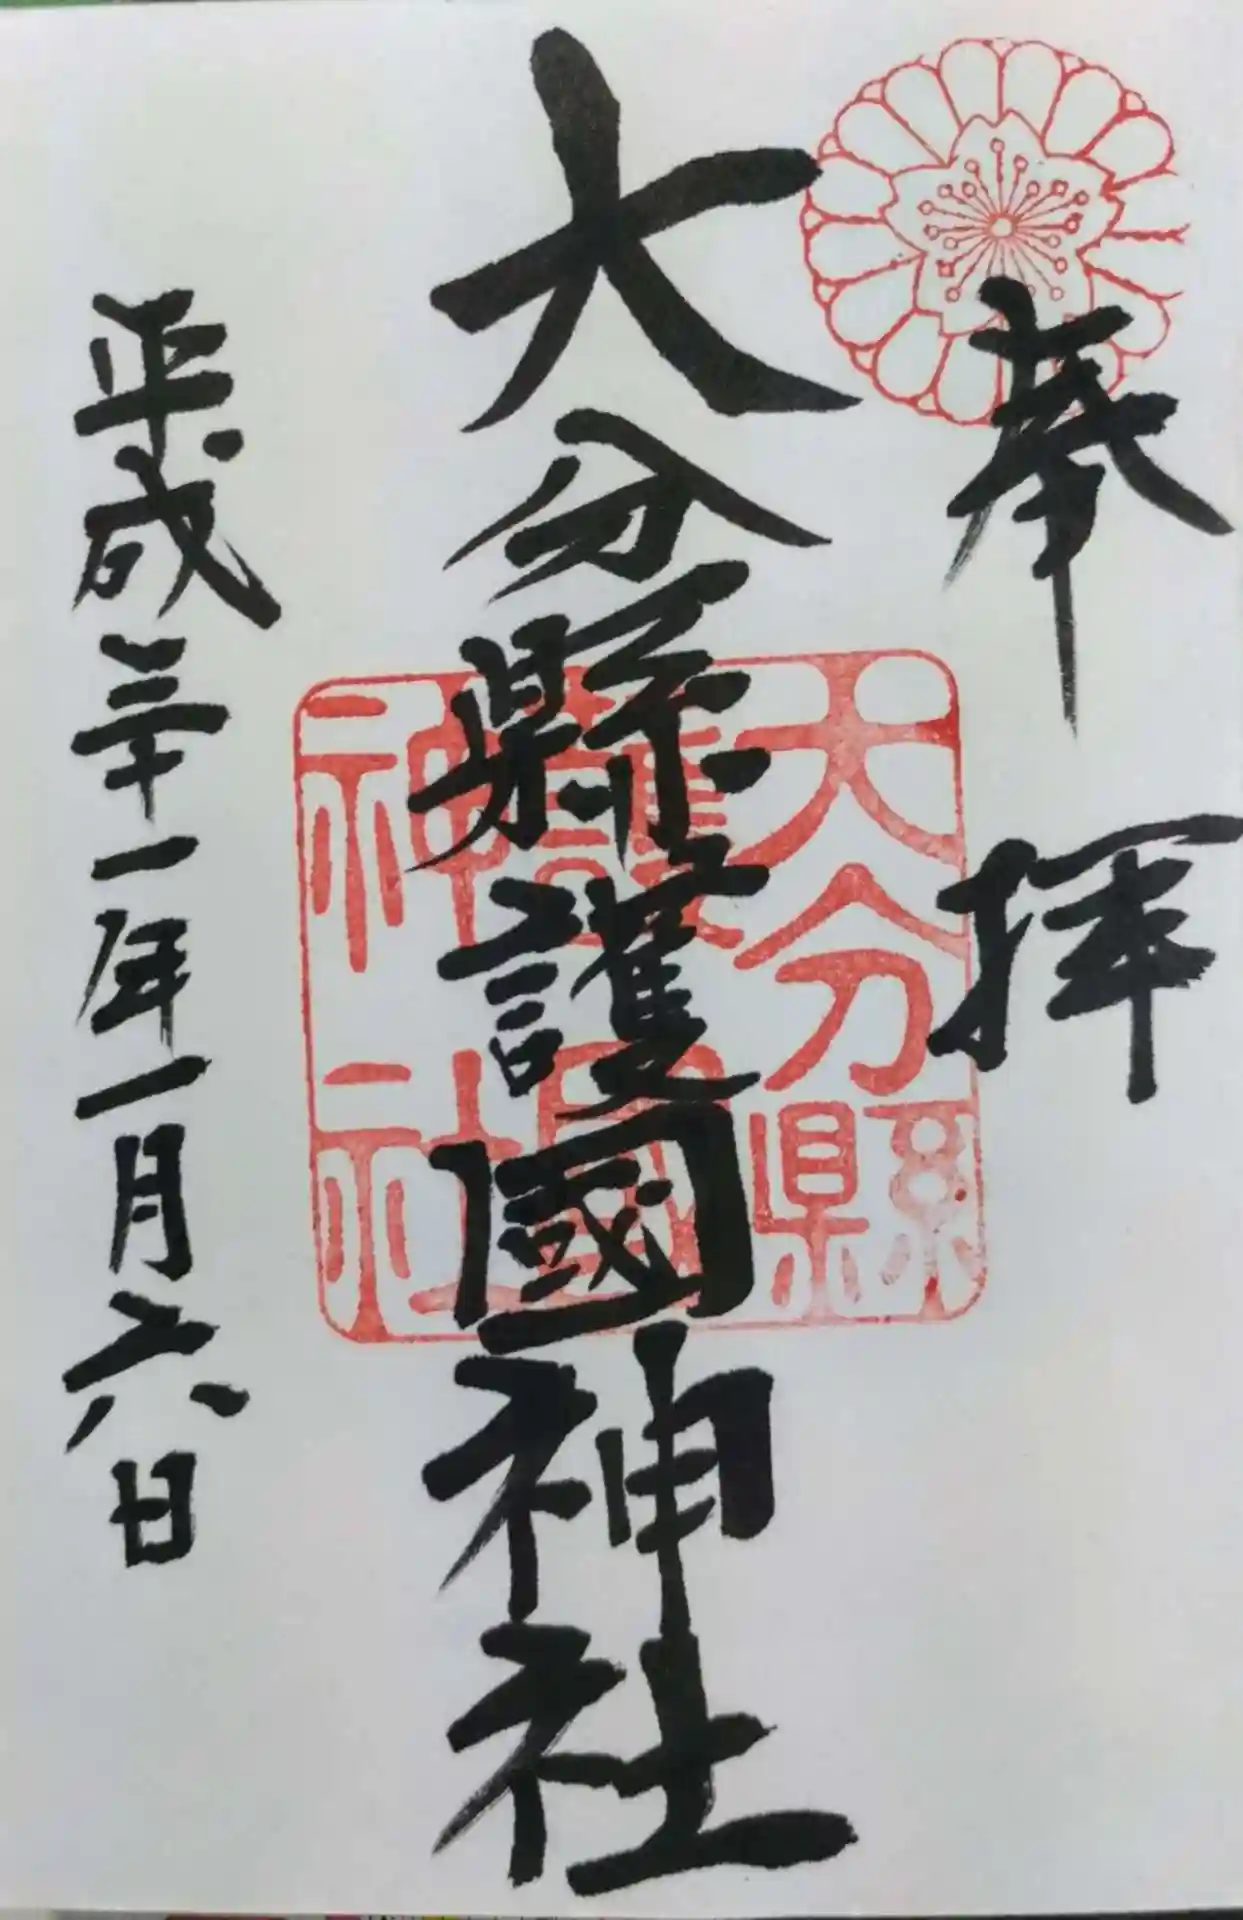 奉拝
大分縣護國神社
平成三十一年一月六日
大分縣
護國
神社